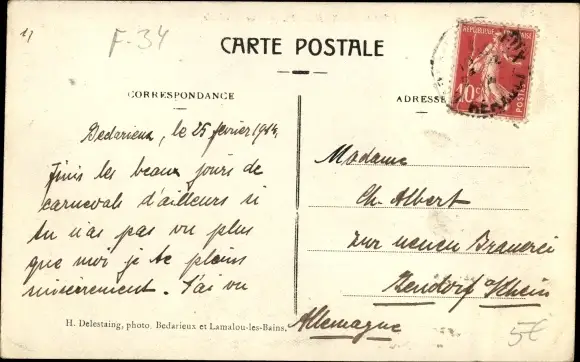 F-34
CARTE POSTALE
CORRESPONDANCE
ADRESSE
RÉPUBLIQUE FRANÇAISE
10c
POSTES
HERAULT
Bedarieux, le 25 février 1914.
Finis les beaux jours de
carnevals d'ailleurs si
tu n'as pas vu plus
que moi je te plains
misèrement. J'ai vu
H. Delestaing, photo. Bedarieux et Lamalou-les-Bains.
Madame
Ch. Albert
zur neuen Brauerei
Bendorf a/Rhein
Allemagne
5€